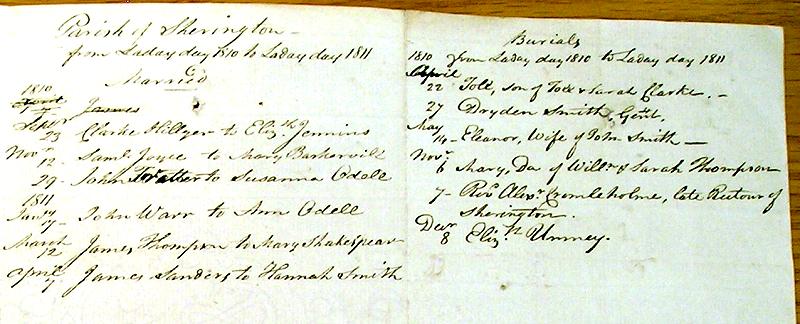 Parish of Sherington -
from Laday day 1810 to Laday day 1811
Married
1810
April
7 - James
Septr
23 Clarke Hillyer to Elizth Jennins
Novr
12 - Saml Joyce to Mary Baskervill
29 - John to Susanna Odell
1811
Jany
- John Warr to Ann Odell
March
12 James Thompson to Mary Shakespear
April
7 James Sanders to Hannah Smith
Burials
1810 from Laday day 1810 to Laday day 1811
April
22 Toll, son of Toll & Sarah Clarke. -
27 Dryden Smith, Gent.
May
14 - Eleanor, Wife of John Smith -
Novr
6 Mary, Da of Willm & Sarah Thompson
7 - Revd Alexr Cromleholme, late Rector of
Sherington.
Decr
8 Elizth Umney.